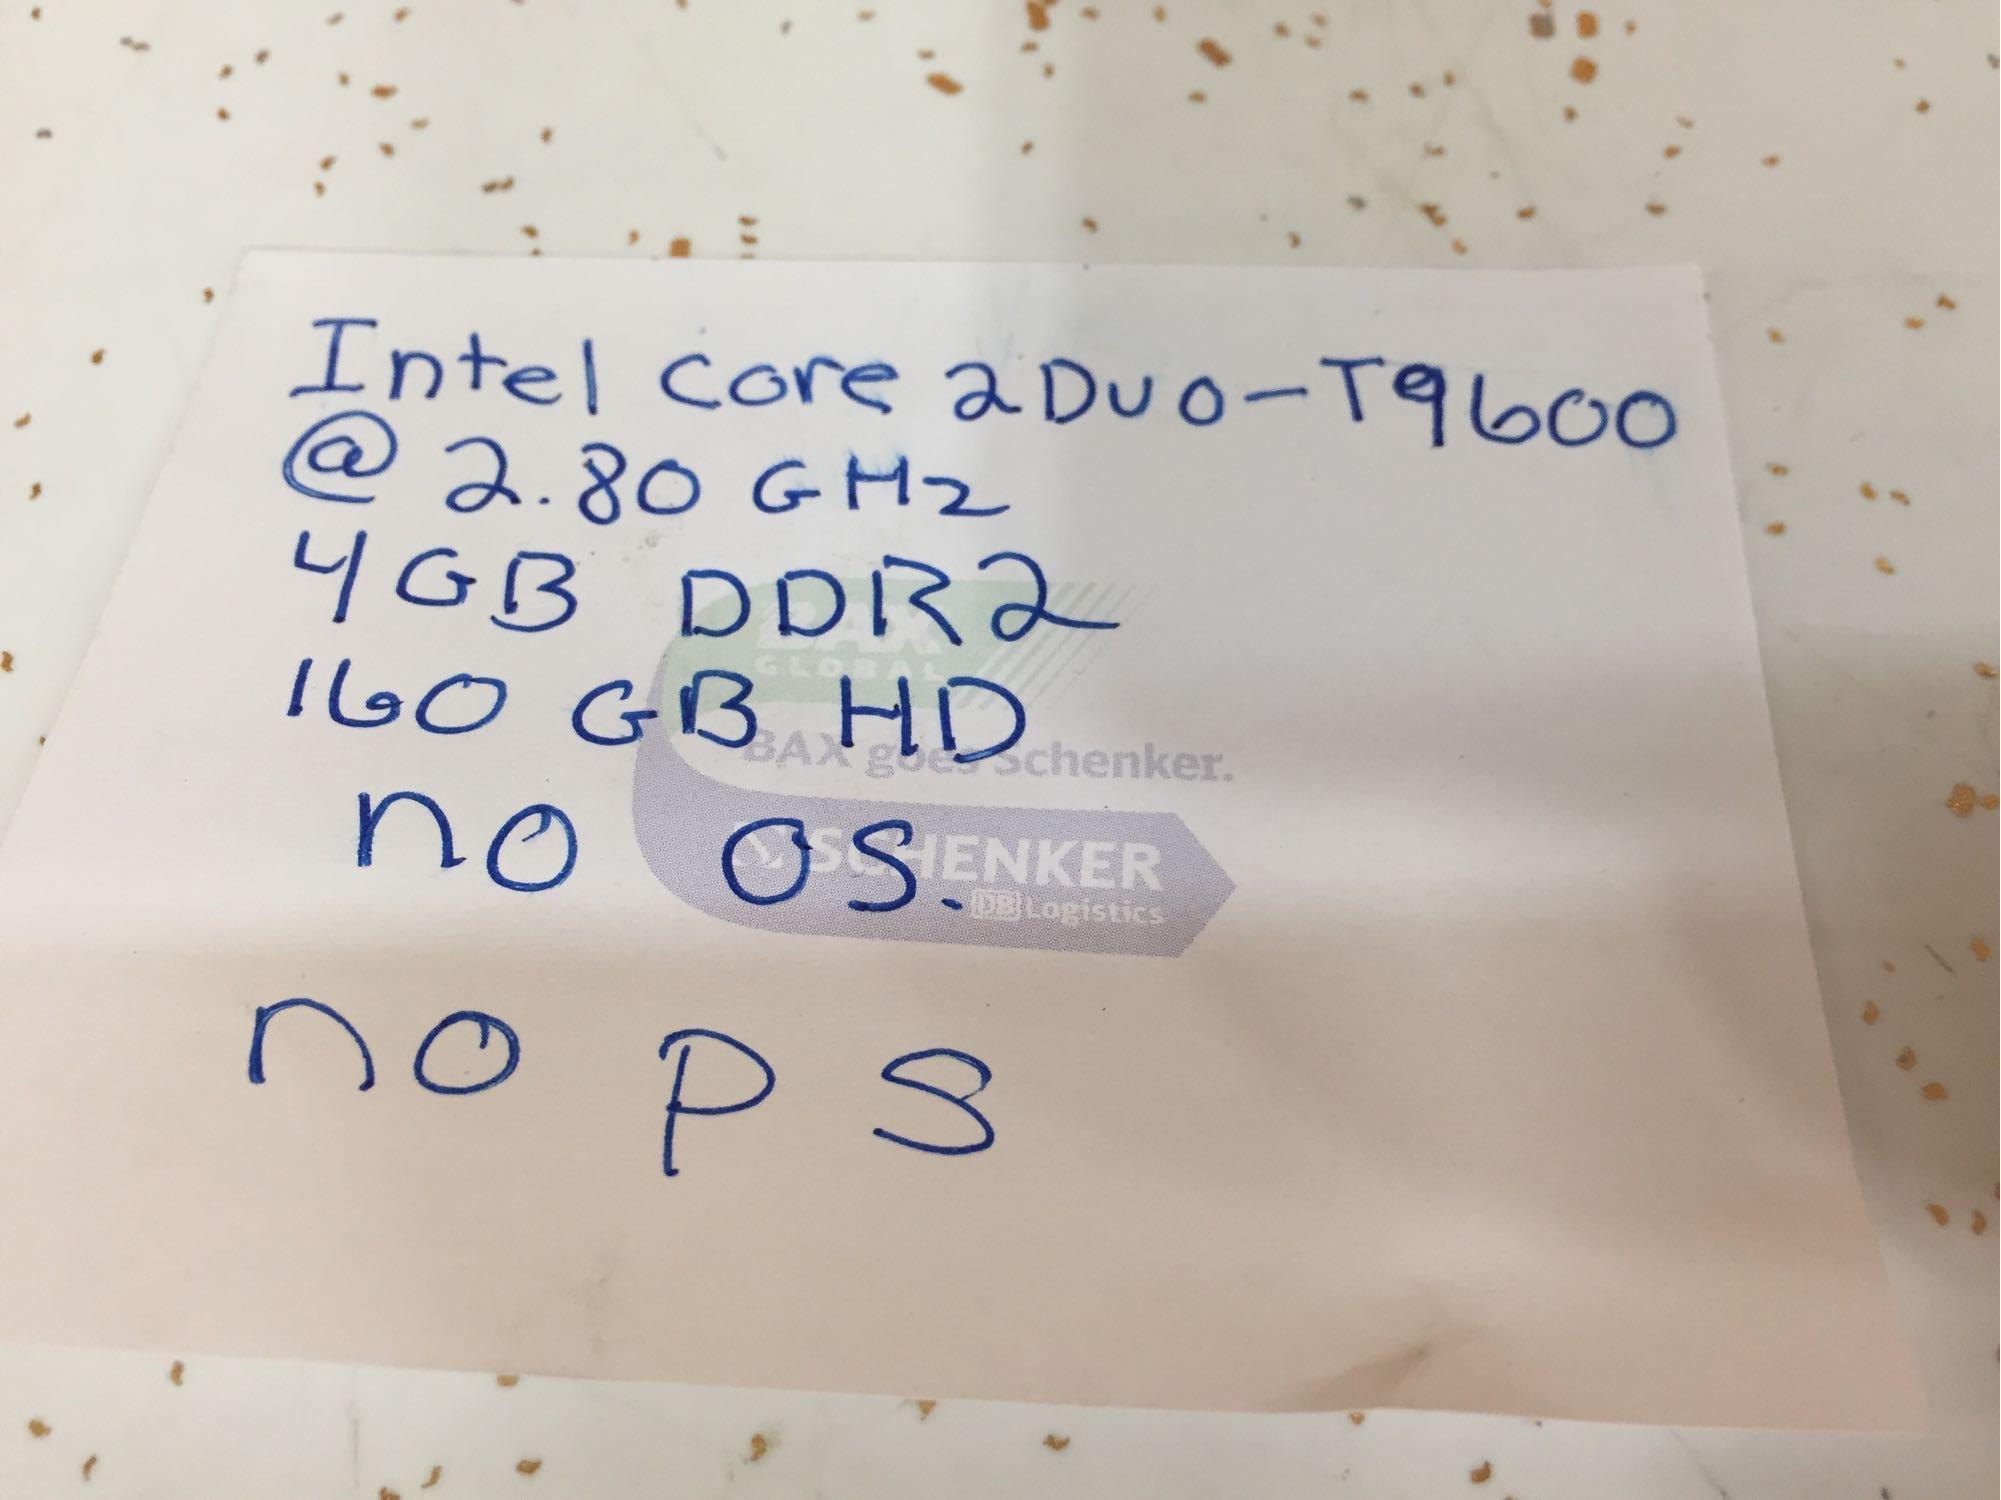 Intel Core 2Duo-T9600
@ 2.80 GHz
4GB DDR2
160 GB HD
no OS.
no PS
BAX
GLOBAL
BAX goes Schenker.
SCHENKER
DB Logistics